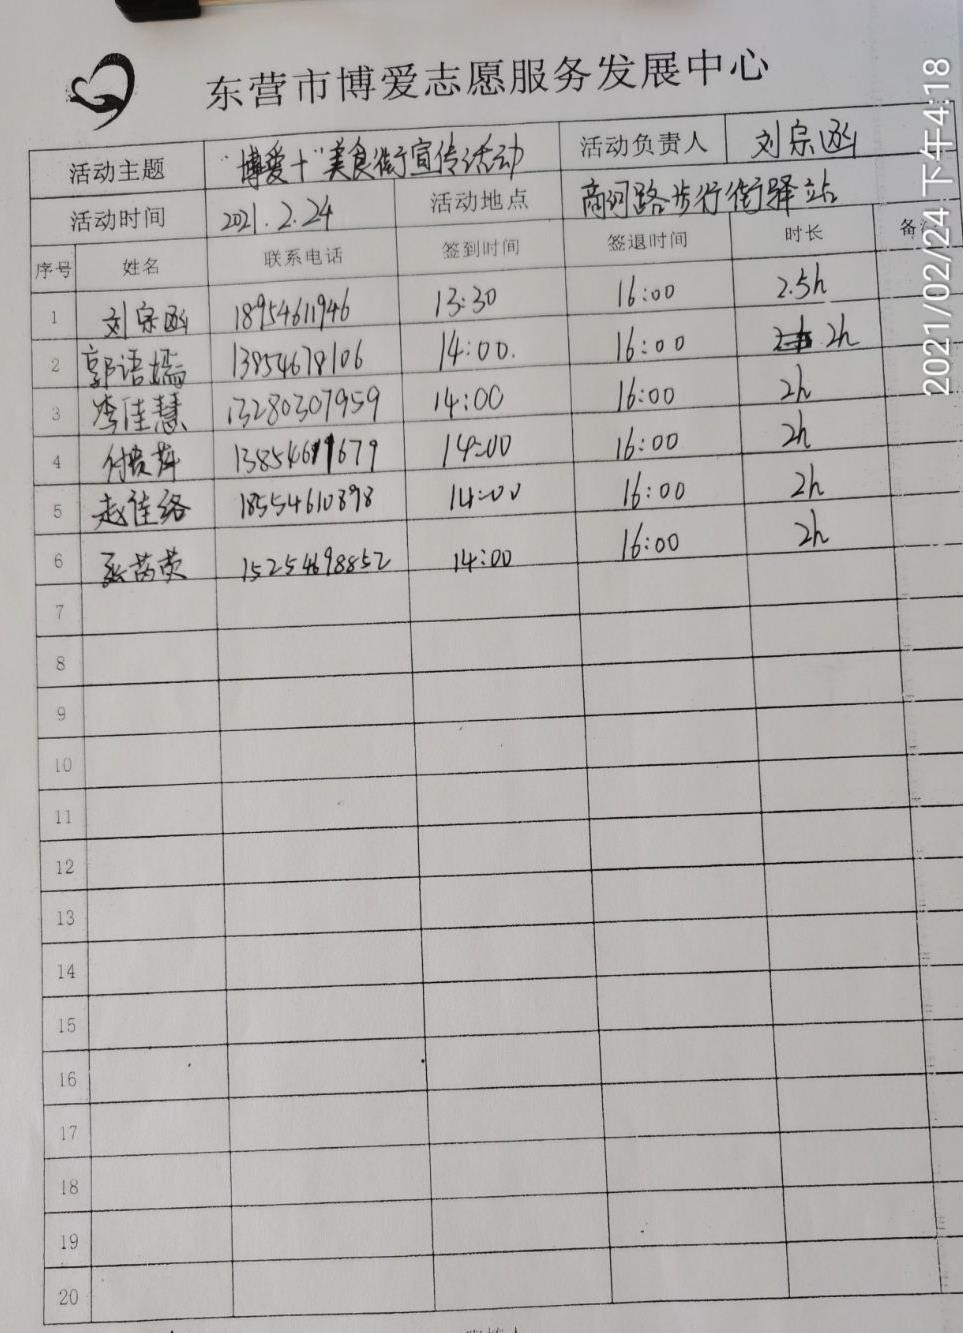 东营市博爱志愿服务发展中心
活动主题 "博爱+"美食街宣传活动 活动负责人 刘宗函
活动时间 2021.2.24 活动地点 商河路步行街驿站
序号 姓名 联系电话 签到时间 签退时间 时长 备
1 刘宗函 18954611946 13:30 16:00 2.5h
2 郭语嫣 13854678106 14:00. 16:00 2h
3 李佳慧 13280307959 14:00 16:00 2h
4 13854611679 14:00 16:00 2h
5 赵佳络 18554610398 14:00 16:00 2h
6 15254698852 14:00 16:00 2h
7
8
9
10
11
12
13
14
15
16
17
18
19
20
2021/02/24 下午4:18